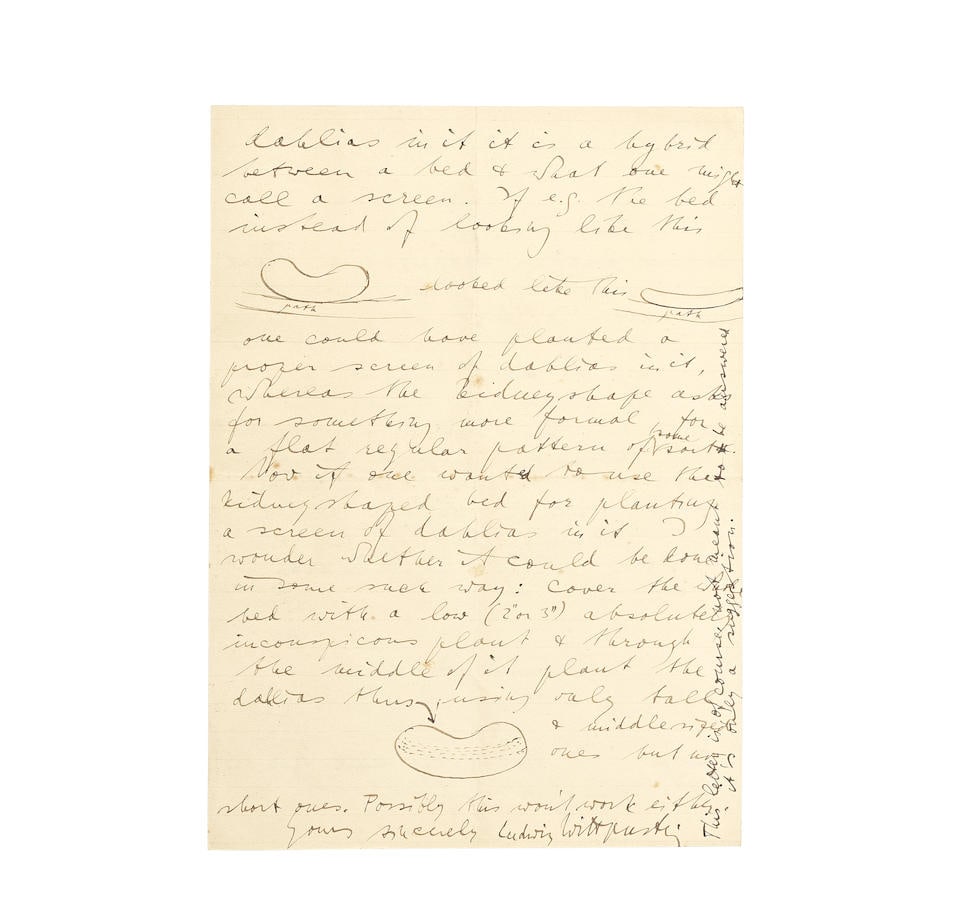 dahlias in it it is a hybrid
between a bed & what one might
call a screen. If e.g. the bed
instead of looking like this
looked like this
path
path
one could have planted a
proper screen of dahlias in it,
whereas the kidneyshape asks
for something more formal, for
a flat regular pattern of some sort.
Now if one wanted to use the
kidneyshaped bed for planting
a screen of dahlias in it I
wonder whether it could be done
in some such way: Cover the
bed with a low (2" or 3") absolutely
inconspicous plant & through
the middle of it plant the
dahlias thus, using only tall
& middlesized
ones but no
short ones. Possibly this won't work either.
Yours sincerely Ludwig Wittgenstein
This letter is of course not meant to be answered
it is only a suggestion.